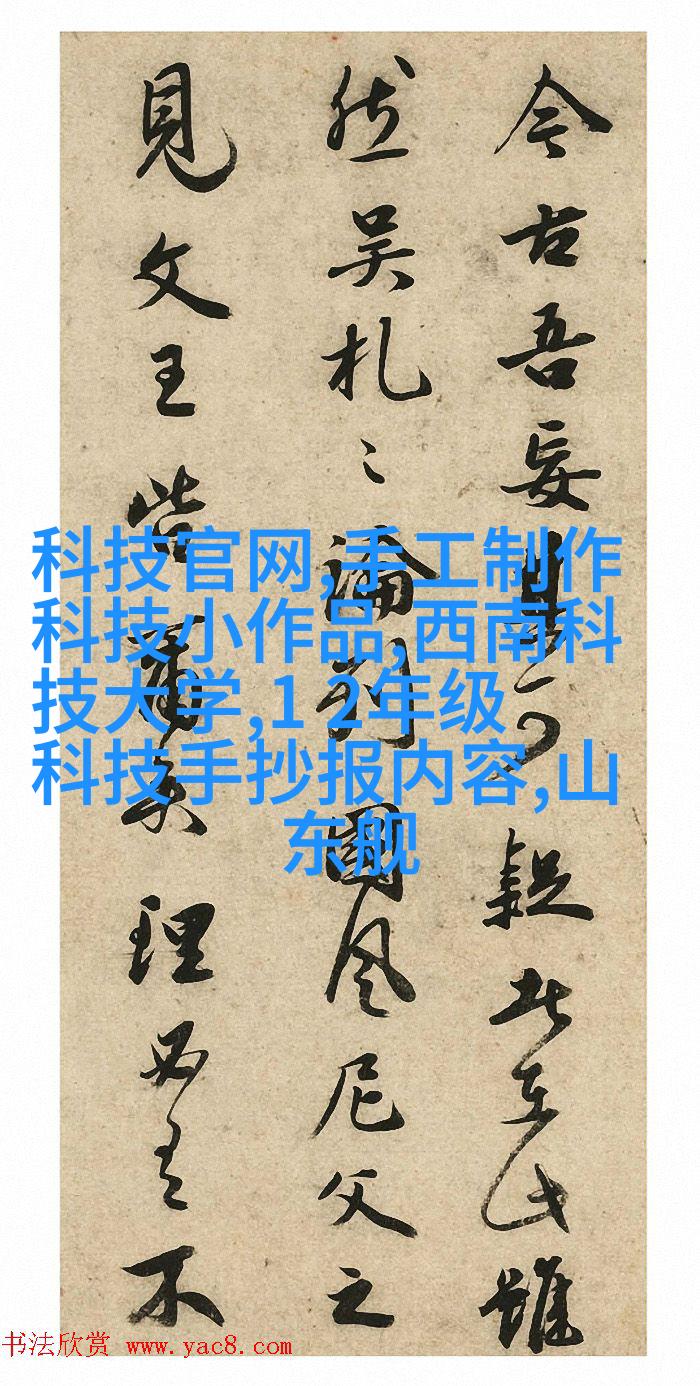 今古吾妄可疑此雖
然吴札〻論列國風尼父之
見文王皆矣理必有不
科技官网,手工制作
科技小作品,西南科
技大学,1 2年级
科技手抄报内容,山
东舰
书法欣赏 www.yac8.com